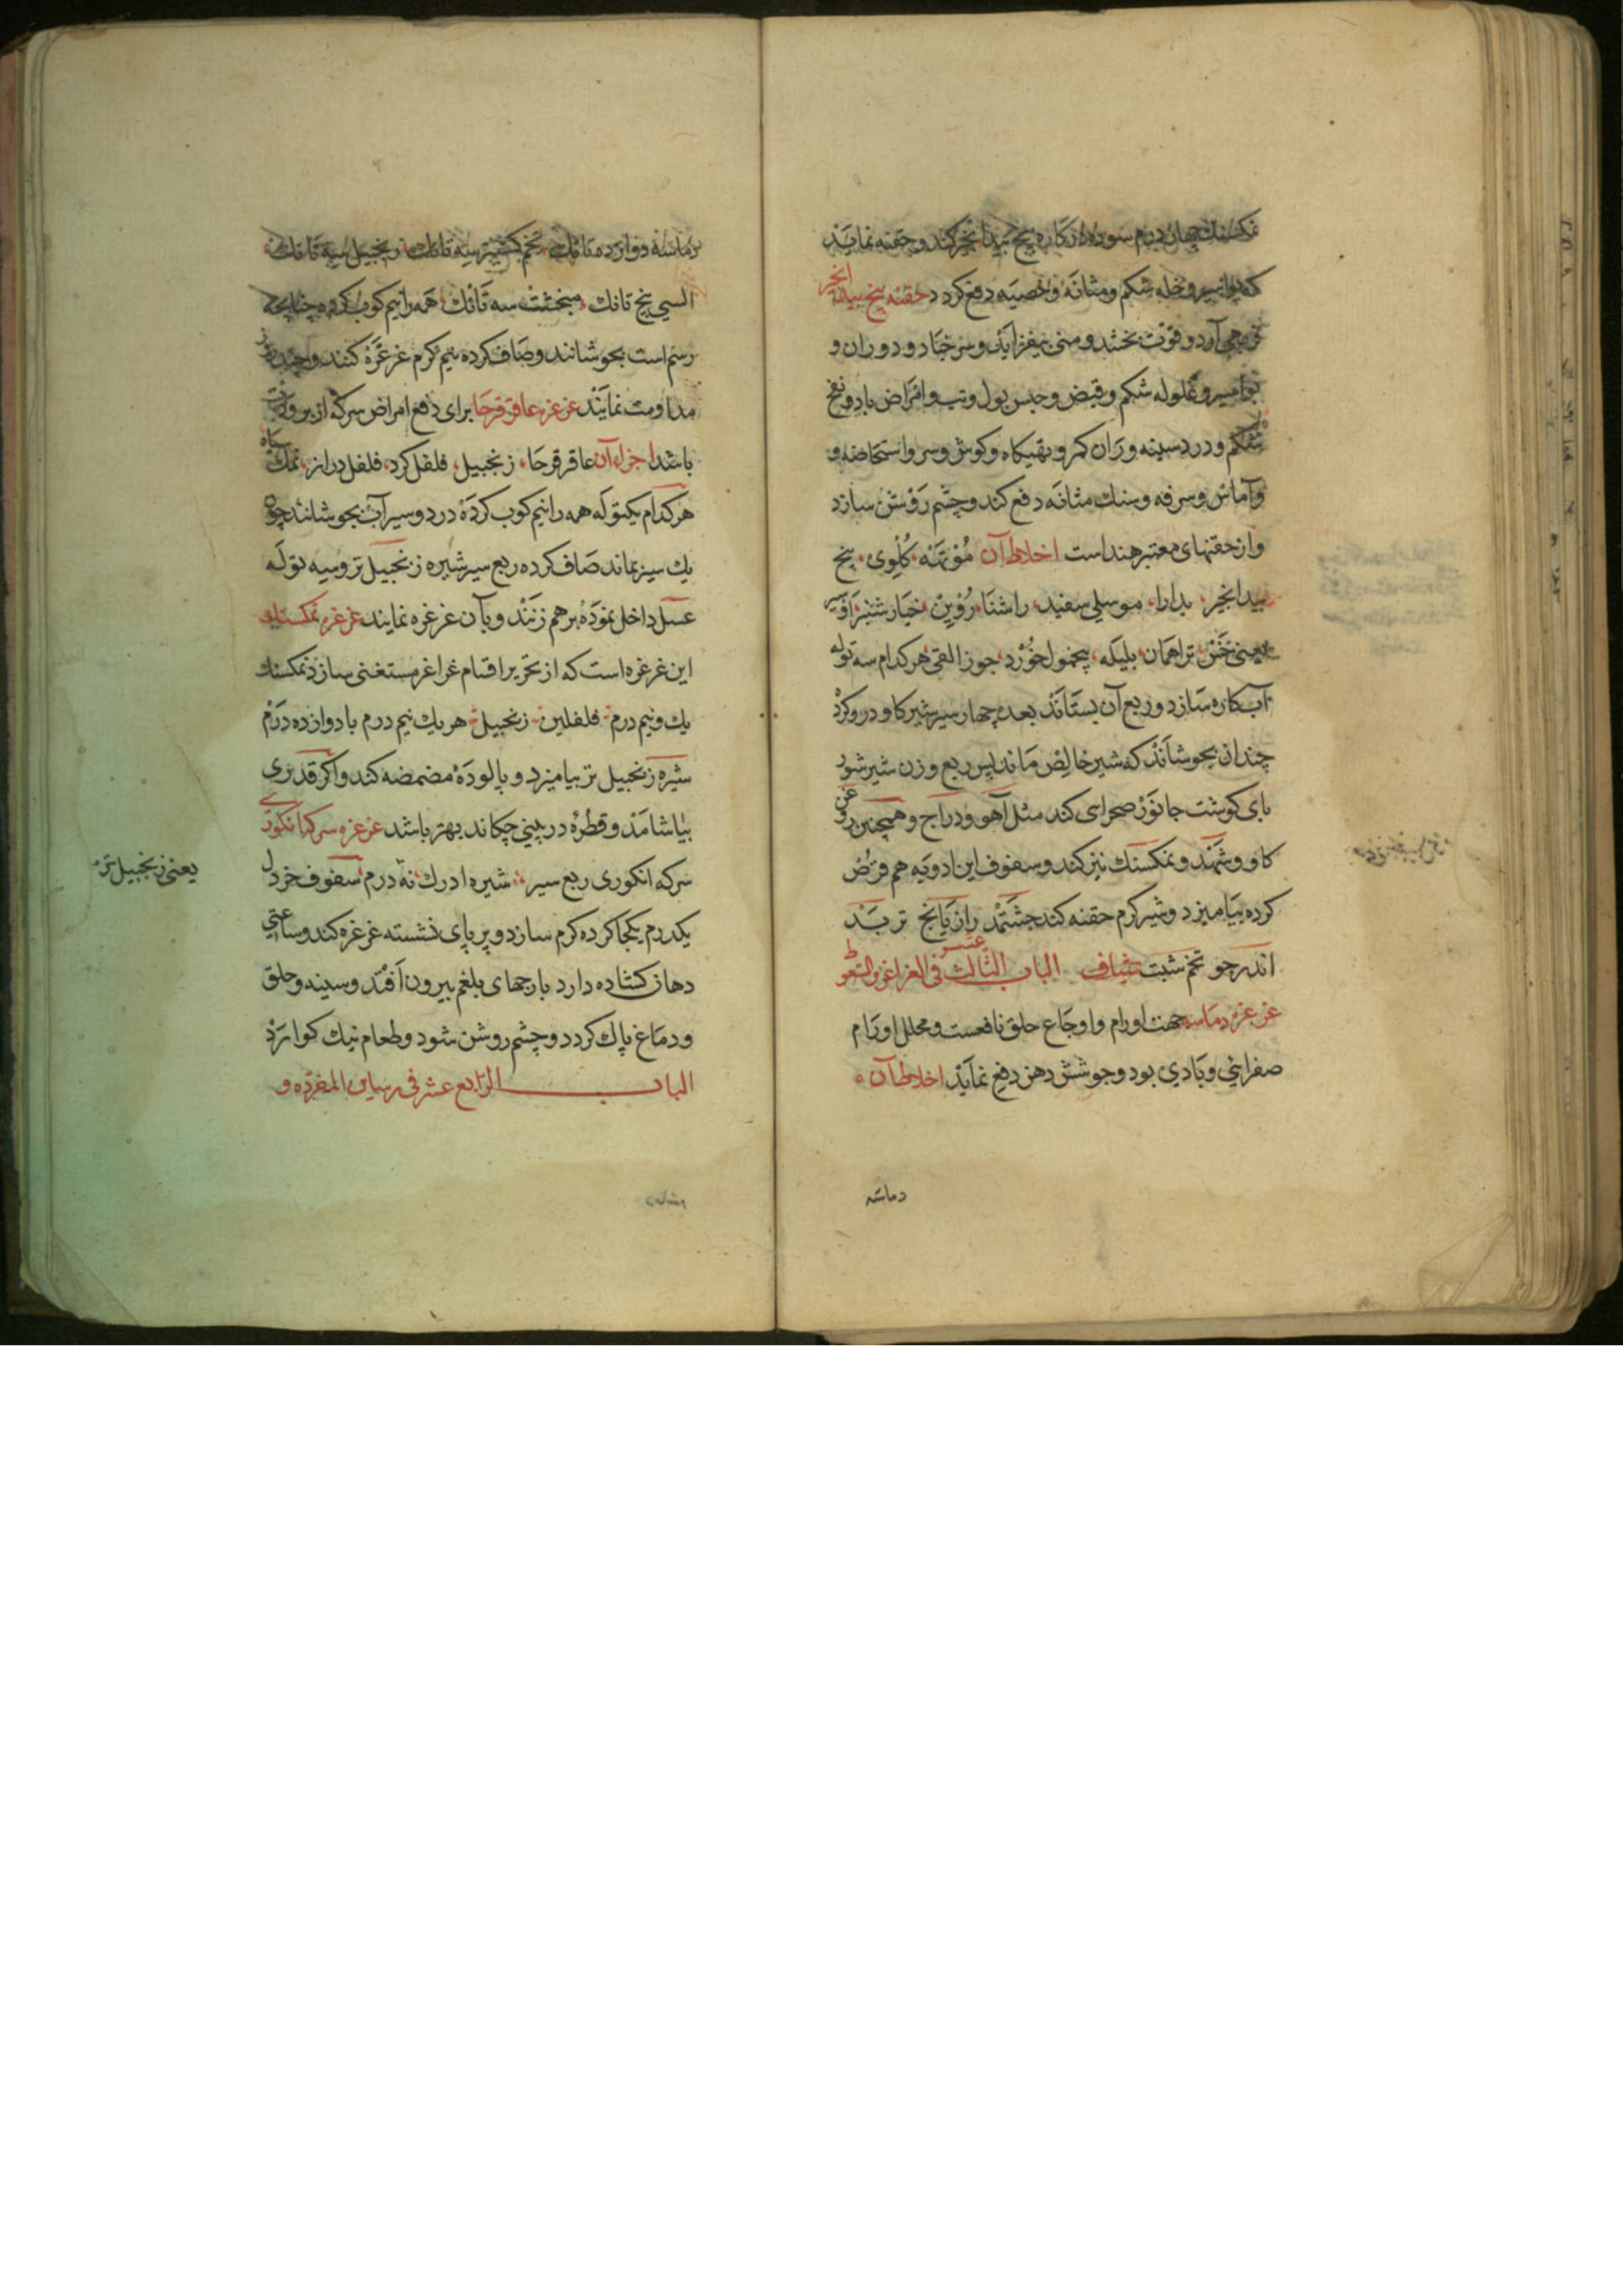 نمکسنك چهار درم سوده در کاره بیخ بیدانجیر کند و حقنه نماید
که بواسیر و خله شکم و مثانه و خصیه دفع کردد حقنه بیخ بیدانجیر
آرد و قوت بخشد و منی بیفزاید و سرخباد و دوران و
بواسیر و غلوله شکم و قبض و حبس بول و تب و امراض باد و نفخ
شکم و درد سینه و ران کمر و تهیکاه و کوش و سر و استحاضه و
و آماس و سرفه و سنك مثانه دفع کند و چشم روشن سازد
و از حقنهای معتبر هند است اخلاط آن مُوْتهَنْه کُلْوی بیخ
بیدانجیر بدارا موسلی سفید راشنا رُوْیِنْ خیارشنبر
یعنی خَسْ تراهمان بلیله بیخ جوز القی هر کدام سه توله
آب کاره سازد و ربع آن بستاند بعده چهار سیر شیر کاو درو کرد
چندان بجوشاند که شیر خالص ماند پس ربع وزن شیر شور
بای کوشت جانور صحرایی کند مثل آهو و دراج و همچنین روغن
کاو و شهد و نمکسنك نیز کند و سفوف این ادویه هم قرض
کرده بیامیزد و شیر کرم حقنه کند رازیانج تربد
اندرجو تخم شبت شیاف الباب الثالث عشر فی الغراغر و السعوط
غرغره دماسه جهت اورام و اوجاع حلق نافعست و محلل اورام
صفرایی و بادی بود و جوشش دهن دفع نماید اخلاط آن
دماسه
دماسه دوازده تانك تخم کشنیز سه تانك زنجبیل سه تانك
السی پنج تانك سه تانك همه را نیم کوب کرده چنانچه
رسم است بجوشانند و صاف کرده نیم کرم غرغره کنند و چند روز
مداومت نمایند غرغره عاقرقرحا برای دفع امراض سر که از برودت
باشد اجزاء آن عاقرقرحا زنجبیل فلفل کرد فلفل دراز نمك سیاه
هر کدام یکتوله همه را نیم کوب کرده در دو سیر آب بجوشانند چون
یك سیر بماند صاف کرده ربع سیر شیره زنجبیل تر و سه توله
عسل داخل نموده برهم زنند و بآن غرغره نمایند غرغره نمکسنك
این غرغره است که از تحریر اقسام غراغر مستغنی سازد نمکسنك
یك و نیم درم فلفلین زنجبیل هر یك نیم درم با دوازده درم
شیره زنجبیل تر بیامیزد و پالوده مضمضه کند و اکر قدری
بیاشامد و قطره در بینی چکاند بهتر باشد غرغره سرکه انکوری
سرکه انکوری ربع سیر شیره ادرك نه درم سفوف خردل
یکدرم یکجا کرده کرم سازد و بر پای نشسته غرغره کند و ساعتی
دهان کشاده دارد پارچهای بلغم بیرون افتد و سینه و حلق
و دماغ پاك کردد و چشم روشن شود و طعام نیك کوارد
الباب الرابع عشر فی المفرده و
یعنی زنجبیل تر